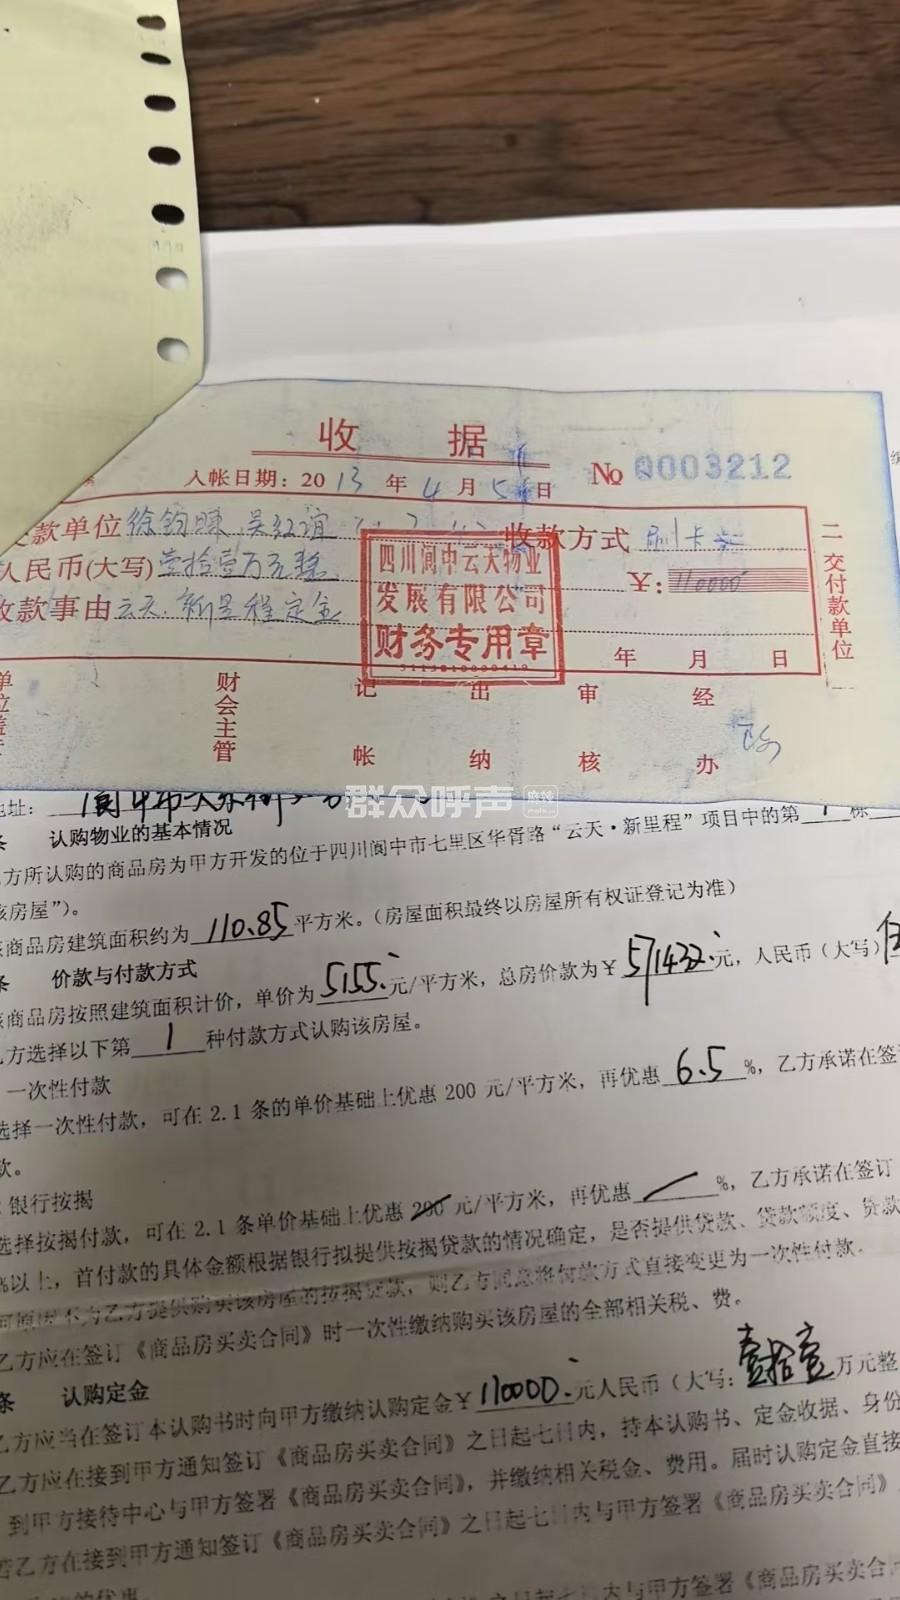 收 据
入帐日期：2013年4月5日 № 0003212
款单位 徐钧 吴红谊 收款方式 刷卡
人民币(大写) 壹拾壹万元整 ￥：110000
收款事由 云天.新里程定金
四川阆中云天物业
发展有限公司
财务专用章
年 月 日
二 交付款单位
财会主管 记帐 出纳 审核 经办
群众呼声
地址：阆中市
条 认购物业的基本情况
方所认购的商品房为甲方开发的位于四川阆中市七里区华胥路“云天·新里程”项目中的第 1 栋
该房屋”）。
该商品房建筑面积约为 110.85 平方米。（房屋面积最终以房屋所有权证登记为准）
条 价款与付款方式
该商品房按照建筑面积计价，单价为 5155 元/平方米，总房价款为￥ 571432 元，人民币（大写）伍
乙方选择以下第 1 种付款方式认购该房屋。
一次性付款
选择一次性付款，可在 2.1 条的单价基础上优惠 200 元/平方米，再优惠 6.5 %，乙方承诺在签
款。
银行按揭
选择按揭付款，可在 2.1 条单价基础上优惠 200 元/平方米，再优惠 %，乙方承诺在签订
%以上，首付款的具体金额根据银行拟提供按揭贷款的情况确定，是否提供贷款、贷款额度、贷款
何原因不为乙方提供购买该房屋的按揭贷款，则乙方同意将付款方式直接变更为一次性付款。
乙方应在签订《商品房买卖合同》时一次性缴纳购买该房屋的全部相关税、费。
条 认购定金
乙方应当在签订本认购书时向甲方缴纳认购定金￥ 110000 元人民币（大写：壹拾壹万元整
乙方应在接到甲方通知签订《商品房买卖合同》之日起七日内，持本认购书、定金收据、身份
到甲方接待中心与甲方签署《商品房买卖合同》，并缴纳相关税金、费用。届时认购定金直接
若乙方在接到甲方通知签订《商品房买卖合同》之日起七日内与甲方签署《商品房买卖合同》
的优惠。
与甲方签署《商品房买卖合